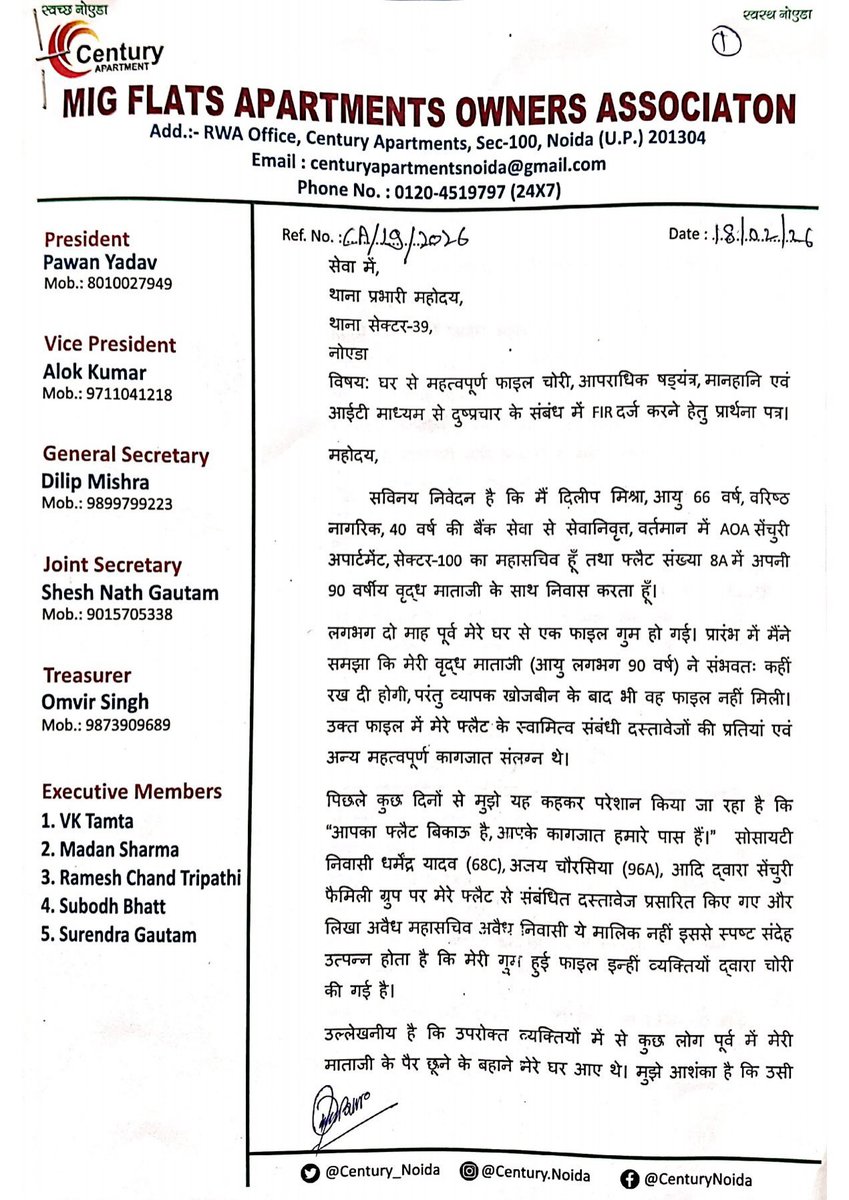 स्वच्छ नोएडा
स्वस्थ नोएडा
①
Century
APARTMENT
MIG FLATS APARTMENTS OWNERS ASSOCIATON
Add.:- RWA Office, Century Apartments, Sec-100, Noida (U.P.) 201304
Email : centuryapartmentsnoida@gmail.com
Phone No. : 0120-4519797 (24X7)
President
Pawan Yadav
Mob.: 8010027949
Vice President
Alok Kumar
Mob.: 9711041218
General Secretary
Dilip Mishra
Mob.: 9899799223
Joint Secretary
Shesh Nath Gautam
Mob.: 9015705338
Treasurer
Omvir Singh
Mob.: 9873909689
Executive Members
1. VK Tamta
2. Madan Sharma
3. Ramesh Chand Tripathi
4. Subodh Bhatt
5. Surendra Gautam
Ref. No. : CA/19/2026
Date : 18/02/26
सेवा में,
थाना प्रभारी महोदय,
थाना सेक्टर-39,
नोएडा
विषय: घर से महत्वपूर्ण फाइल चोरी, आपराधिक षड्यंत्र, मानहानि एवं
आईटी माध्यम से दुष्प्रचार के संबंध में FIR दर्ज करने हेतु प्रार्थना पत्र।
महोदय,
सविनय निवेदन है कि मैं दिलीप मिश्रा, आयु 66 वर्ष, वरिष्ठ
नागरिक, 40 वर्ष की बैंक सेवा से सेवानिवृत्त, वर्तमान में AOA सेंचुरी
अपार्टमेंट, सेक्टर-100 का महासचिव हूँ तथा फ्लैट संख्या 8A में अपनी
90 वर्षीय वृद्ध माताजी के साथ निवास करता हूँ।
लगभग दो माह पूर्व मेरे घर से एक फाइल गुम हो गई। प्रारंभ में मैंने
समझा कि मेरी वृद्ध माताजी (आयु लगभग 90 वर्ष) ने संभवतः कहीं
रख दी होगी, परंतु व्यापक खोजबीन के बाद भी वह फाइल नहीं मिली।
उक्त फाइल में मेरे फ्लैट के स्वामित्व संबंधी दस्तावेजों की प्रतियां एवं
अन्य महत्वपूर्ण कागजात संलग्न थे।
पिछले कुछ दिनों से मुझे यह कहकर परेशान किया जा रहा है कि
“आपका फ्लैट बिकाऊ है, आपके कागजात हमारे पास हैं।” सोसायटी
निवासी धर्मेंद्र यादव (68C), अजय चौरसिया (96A), आदि द्वारा सेंचुरी
फैमिली ग्रुप पर मेरे फ्लैट से संबंधित दस्तावेज प्रसारित किए गए और
लिखा अवैध महासचिव अवैध निवासी ये मालिक नहीं इससे स्पष्ट संदेह
उत्पन्न होता है कि मेरी गुम हुई फाइल इन्हीं व्यक्तियों द्वारा चोरी
की गई है।
उल्लेखनीय है कि उपरोक्त व्यक्तियों में से कुछ लोग पूर्व में मेरी
माताजी के पैर छूने के बहाने मेरे घर आए थे। मुझे आशंका है कि उसी
@Century_Noida @Century.Noida @CenturyNoida